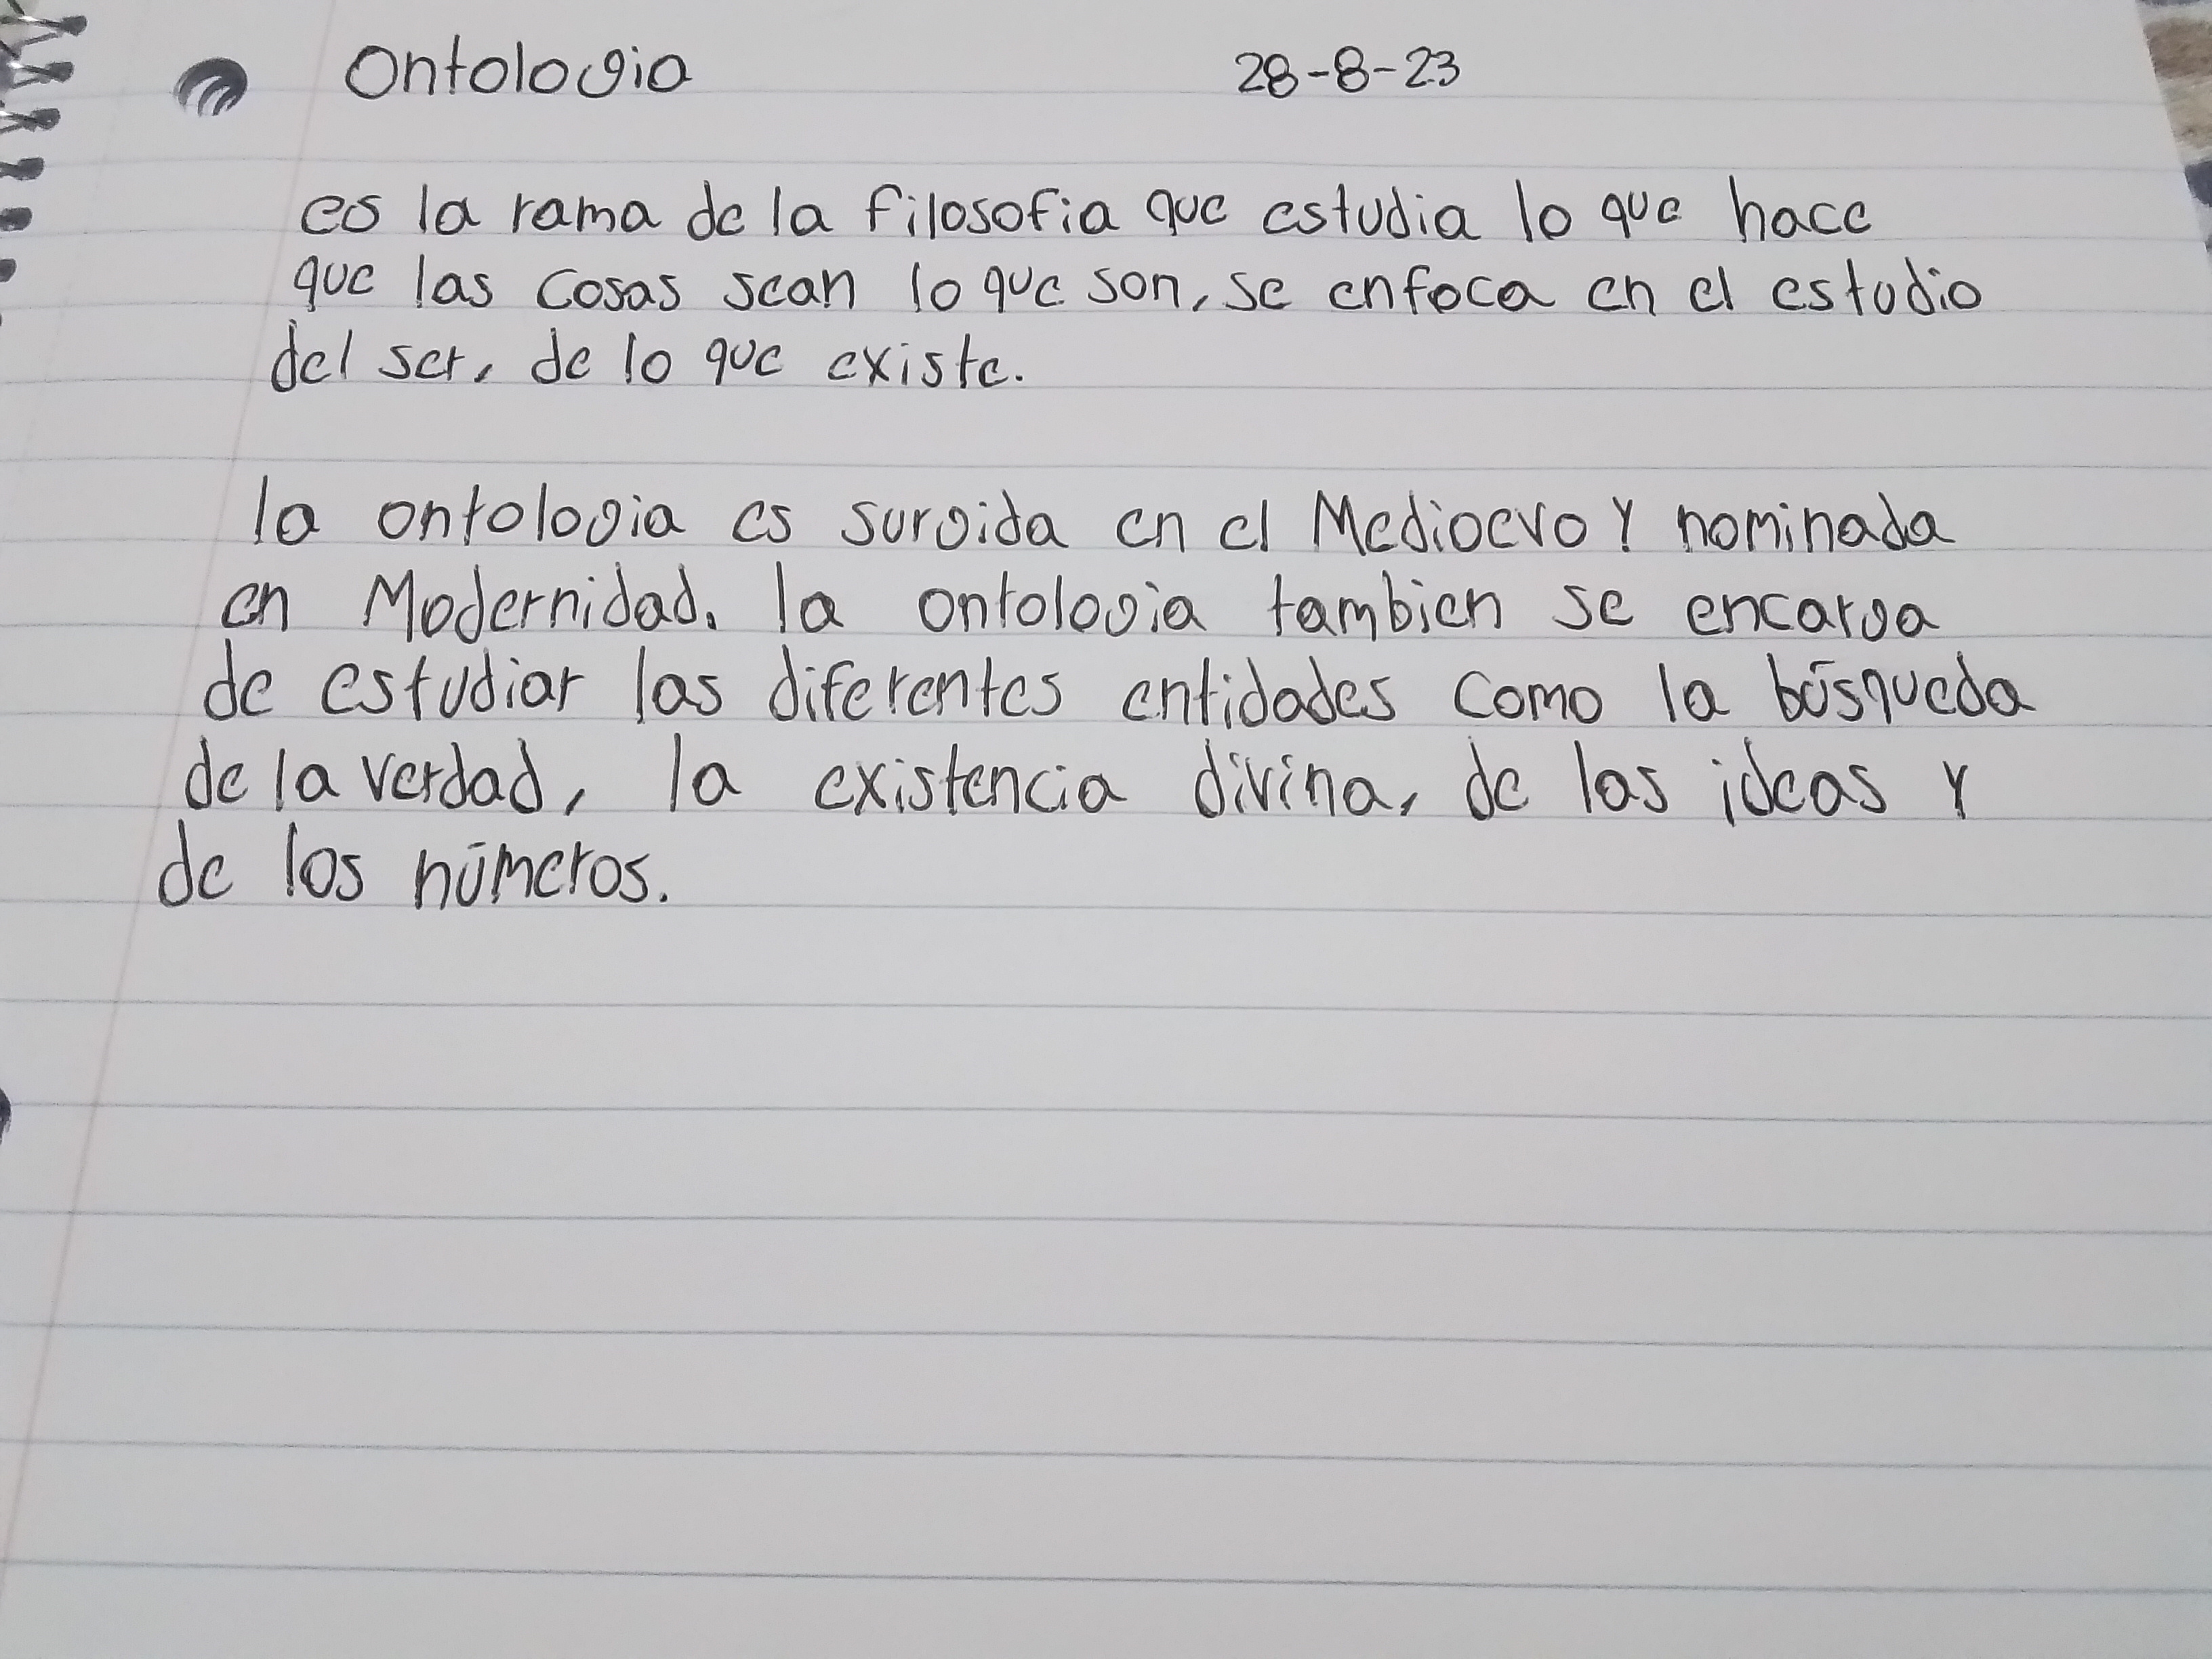 Ontologia 28-8-23
es la rama de la filosofia que estudia lo que hace
que las cosas sean lo que son, se enfoca en el estudio
del ser, de lo que existe.
la ontologia es surgida en el Medioevo y nominada
en Modernidad. la ontologia tambien se encarga
de estudiar las diferentes entidades como la búsqueda
de la verdad, la existencia divina, de las ideas y
de los números.